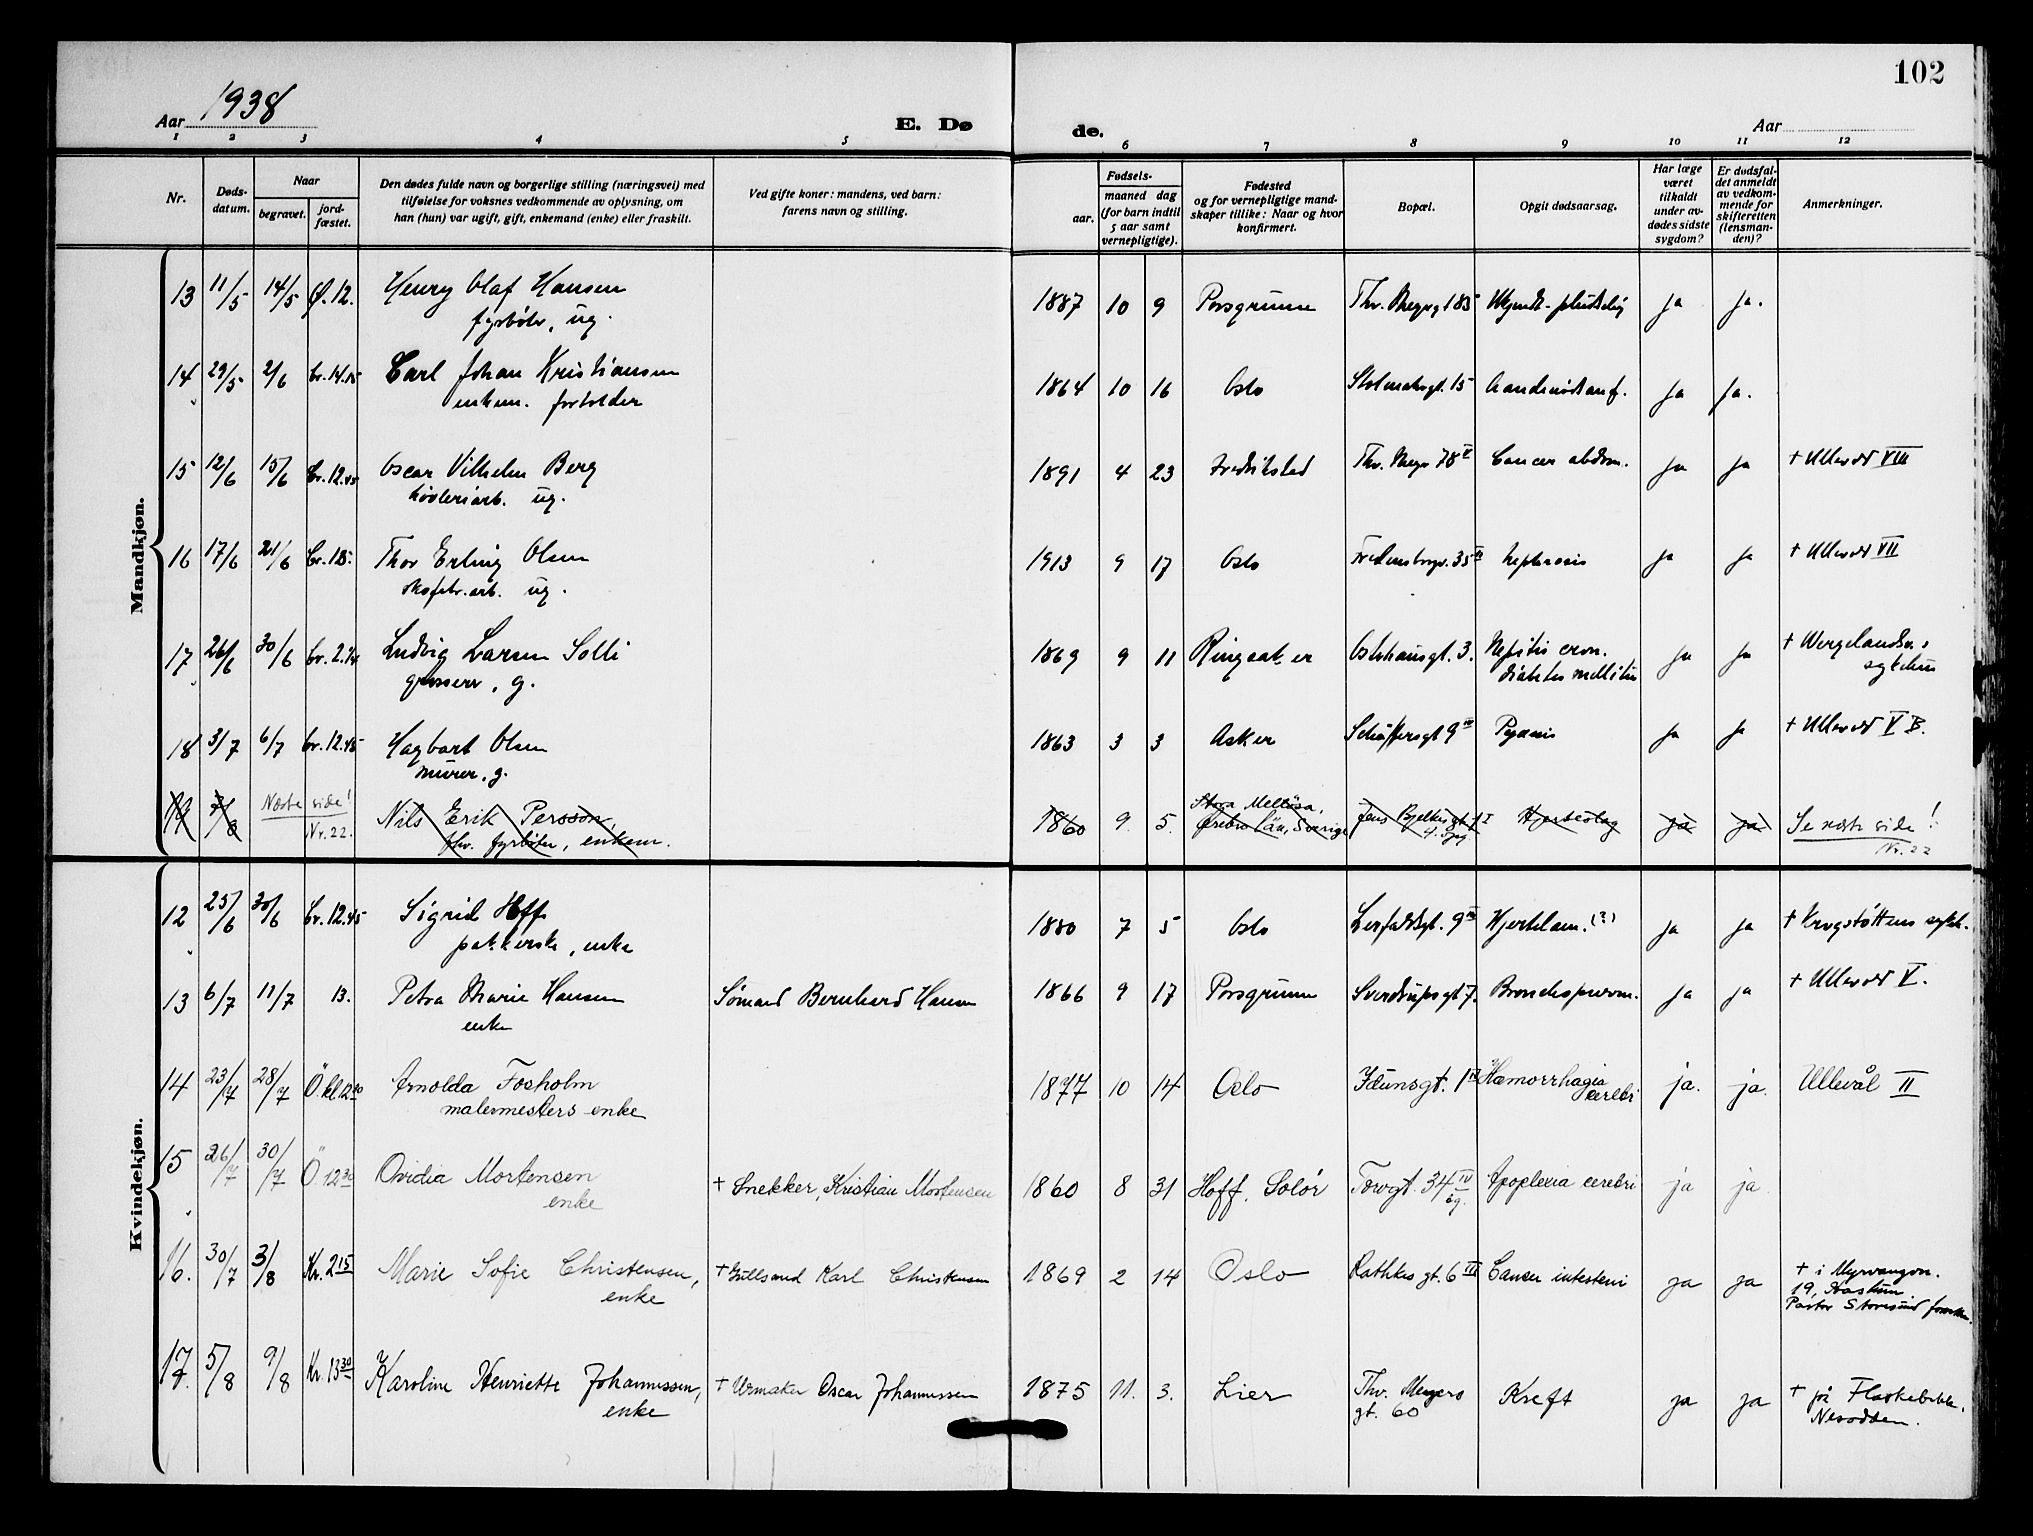 102
Aar 1938
E. Dø
de.
Aar
1 2 3 4 5 6 7 8 9 10 11 12
Nr.
Døds-
datum.
Naar
begravet.
jord-
fæstet.
Den dødes fulde navn og borgerlige stilling (næringsvei) med
tilføielse for voksnes vedkommende av oplysning, om
han (hun) var ugift, gift, enkemand (enke) eller fraskilt.
Ved gifte koner: mandens, ved barn:
farens navn og stilling.
Fødsels-
aar.
maaned dag
(for barn indtil
5 aar samt
vernepligtige).
Fødested
og for vernepligtige mand-
skaper tillike: Naar og hvor
konfirmert.
Bopæl.
Opgit dødsaarsag.
Har læge
været
tilkaldt
under av-
dødes sidste
sygdom?
Er dødsfal-
det anmeldt
av vedkom-
mende for
skifteretten
(lensman-
den)?
Anmerkninger.
Mandkjøn.
13 11/5 14/5 Ø. 12. Henry Olaf Hansen 1887 10 9 Porsgrunn Thv. Meyersgt 85 Ukjendt - plutselig ja ja.
fyrbøter, ug.
14 29/5 2/6 Cr. 14.15 Carl Johan Kristiansen 1864 10 16 Oslo 15 ja ja.
enkem.
15 12/6 15/6 Cr. 12.45 Oscar Vilhelm Berg 1891 4 23 Fredrikstad Thv. Meyer 78 V Cancer abdom. ja ja + Ullevål VIII
høvleriarb. ug.
16 17/6 21/6 Cr. Thor Erling Olsen 1913 9 17 Oslo Fredensborgv. 35 II Nephrosis ja ja + Ullevål VII
skofabr.arb. ug.
17 26/6 30/6 Cr. Ludvig Larsen Solli 1869 9 11 Ringsaker Osterhausgt. 3. cron. ja ja + Wergelandsv.s
grosserer, g. diabetes mellitus sykehus
18 3/7 6/7 Cr. 12.45 Hagbart Olsen 1863 3 3 Asker Schøffersgt 9 IV Pyæmis ja ja + Ullevål V B.
murer, g.
19 Næste side! Nils Erik Persson, 1860 9. 5. Stora Mellösa, Jens Bjelkesgt. I Hjerteslag ja ja Se næste side!
Nr. 22. fhv. fyrbøter, enkem. Ørebro län, Sverige Nr. 22
Kvindekjøn.
12 25/6 30/6 Cr. 12.45 Sigrid Hoff 1880 7 5 Oslo Lerfaldsgt. 9 III Hjertelam. (?) ja ja + Krogstøttens sykh.
pakkerske, enke
13 6/7 11/7 13. Petra Marie Hansen Sømand Bernhard Hansen 1866 9 17 Porsgrunn Sverdrupsgt 7. ja ja + Ullevål V.
enke
14 23/7 28/7 Ö kl 12 30 Arnolda Fosholm 1877 10 14 Oslo Idunsgt. 1 IV Hæmorrhagia ja. ja. Ullevål II
malermesters enke cerebri
15 26/7 30/7 Ö 12 30 Ovidia Mortensen + Snekker, Kristian Mortensen 1860 8 31 Hoff, Solør Torvgt. 34 IV Apoplexia cerebri ja ja
enke
16. 30/7 3/8 Kr. 2 15 Marie Sofie Christensen, + Gullsmed Karl Christensen 1869 2 14 Oslo Rathkes gt. 6 III Cancer intesteni ja ja + i Myrvangvn.
enke 19,
Pastor
17. 5/8 9/8 Kr. 13 30 Karoline Henriette Johannessen, + Urmaker Oscar Johannessen 1875 11. 3. Lier Thv. Meyers Kreft ja ja + på Flaskebekk,
enke gt. 60 Nesodden.